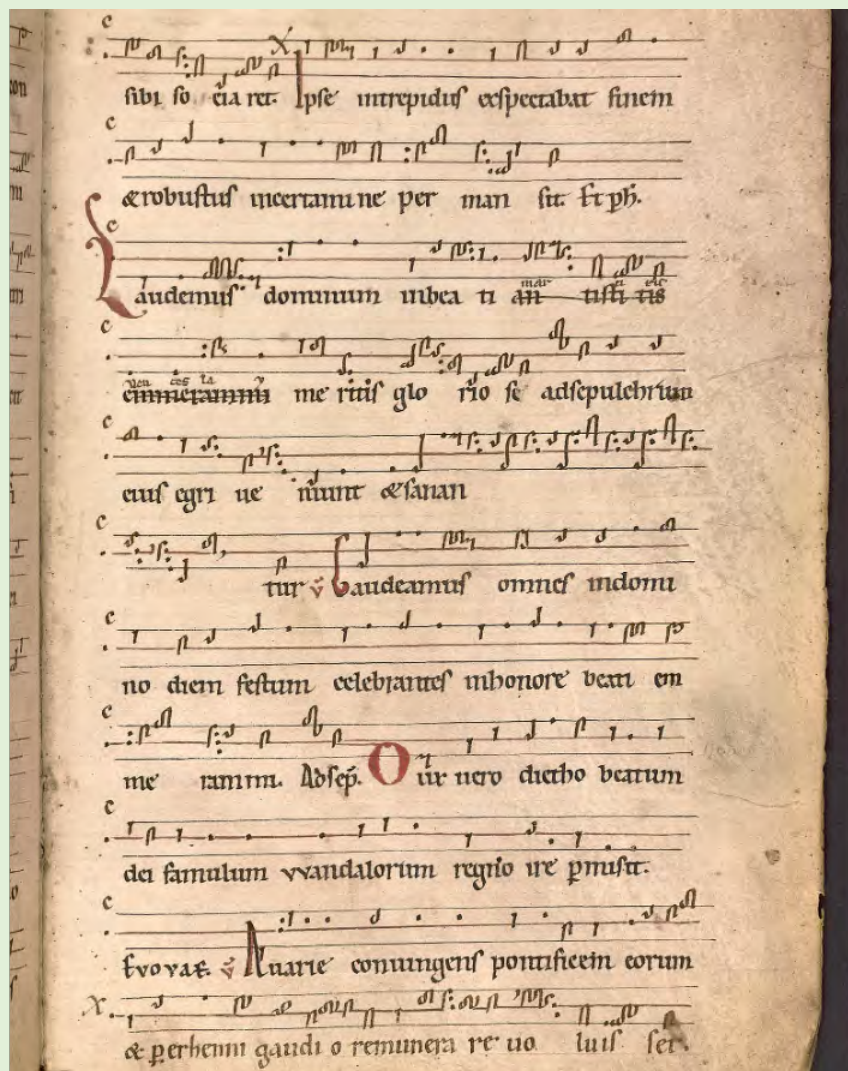 sibi so cia ret. Ipse intrepidus exspectabat finem
& robustus incertamine per man sit. Et ph.
Laudemus dominum inbea ti an tisti tis
emmerammi me ritis glo rio se adsepulchrum
eius egri ue niunt & sanan
tur v Gaudeamus omnes indomi
no diem festum celebrantes inhonore beati em
me rammi. Adsep. Our uero dietho beatum
dei famulum vvandalorum regno ire pmisit.
Evovae. v Auarie coniungens pontificem eorum
& perhenni gaudi o remunera re uo luis set.